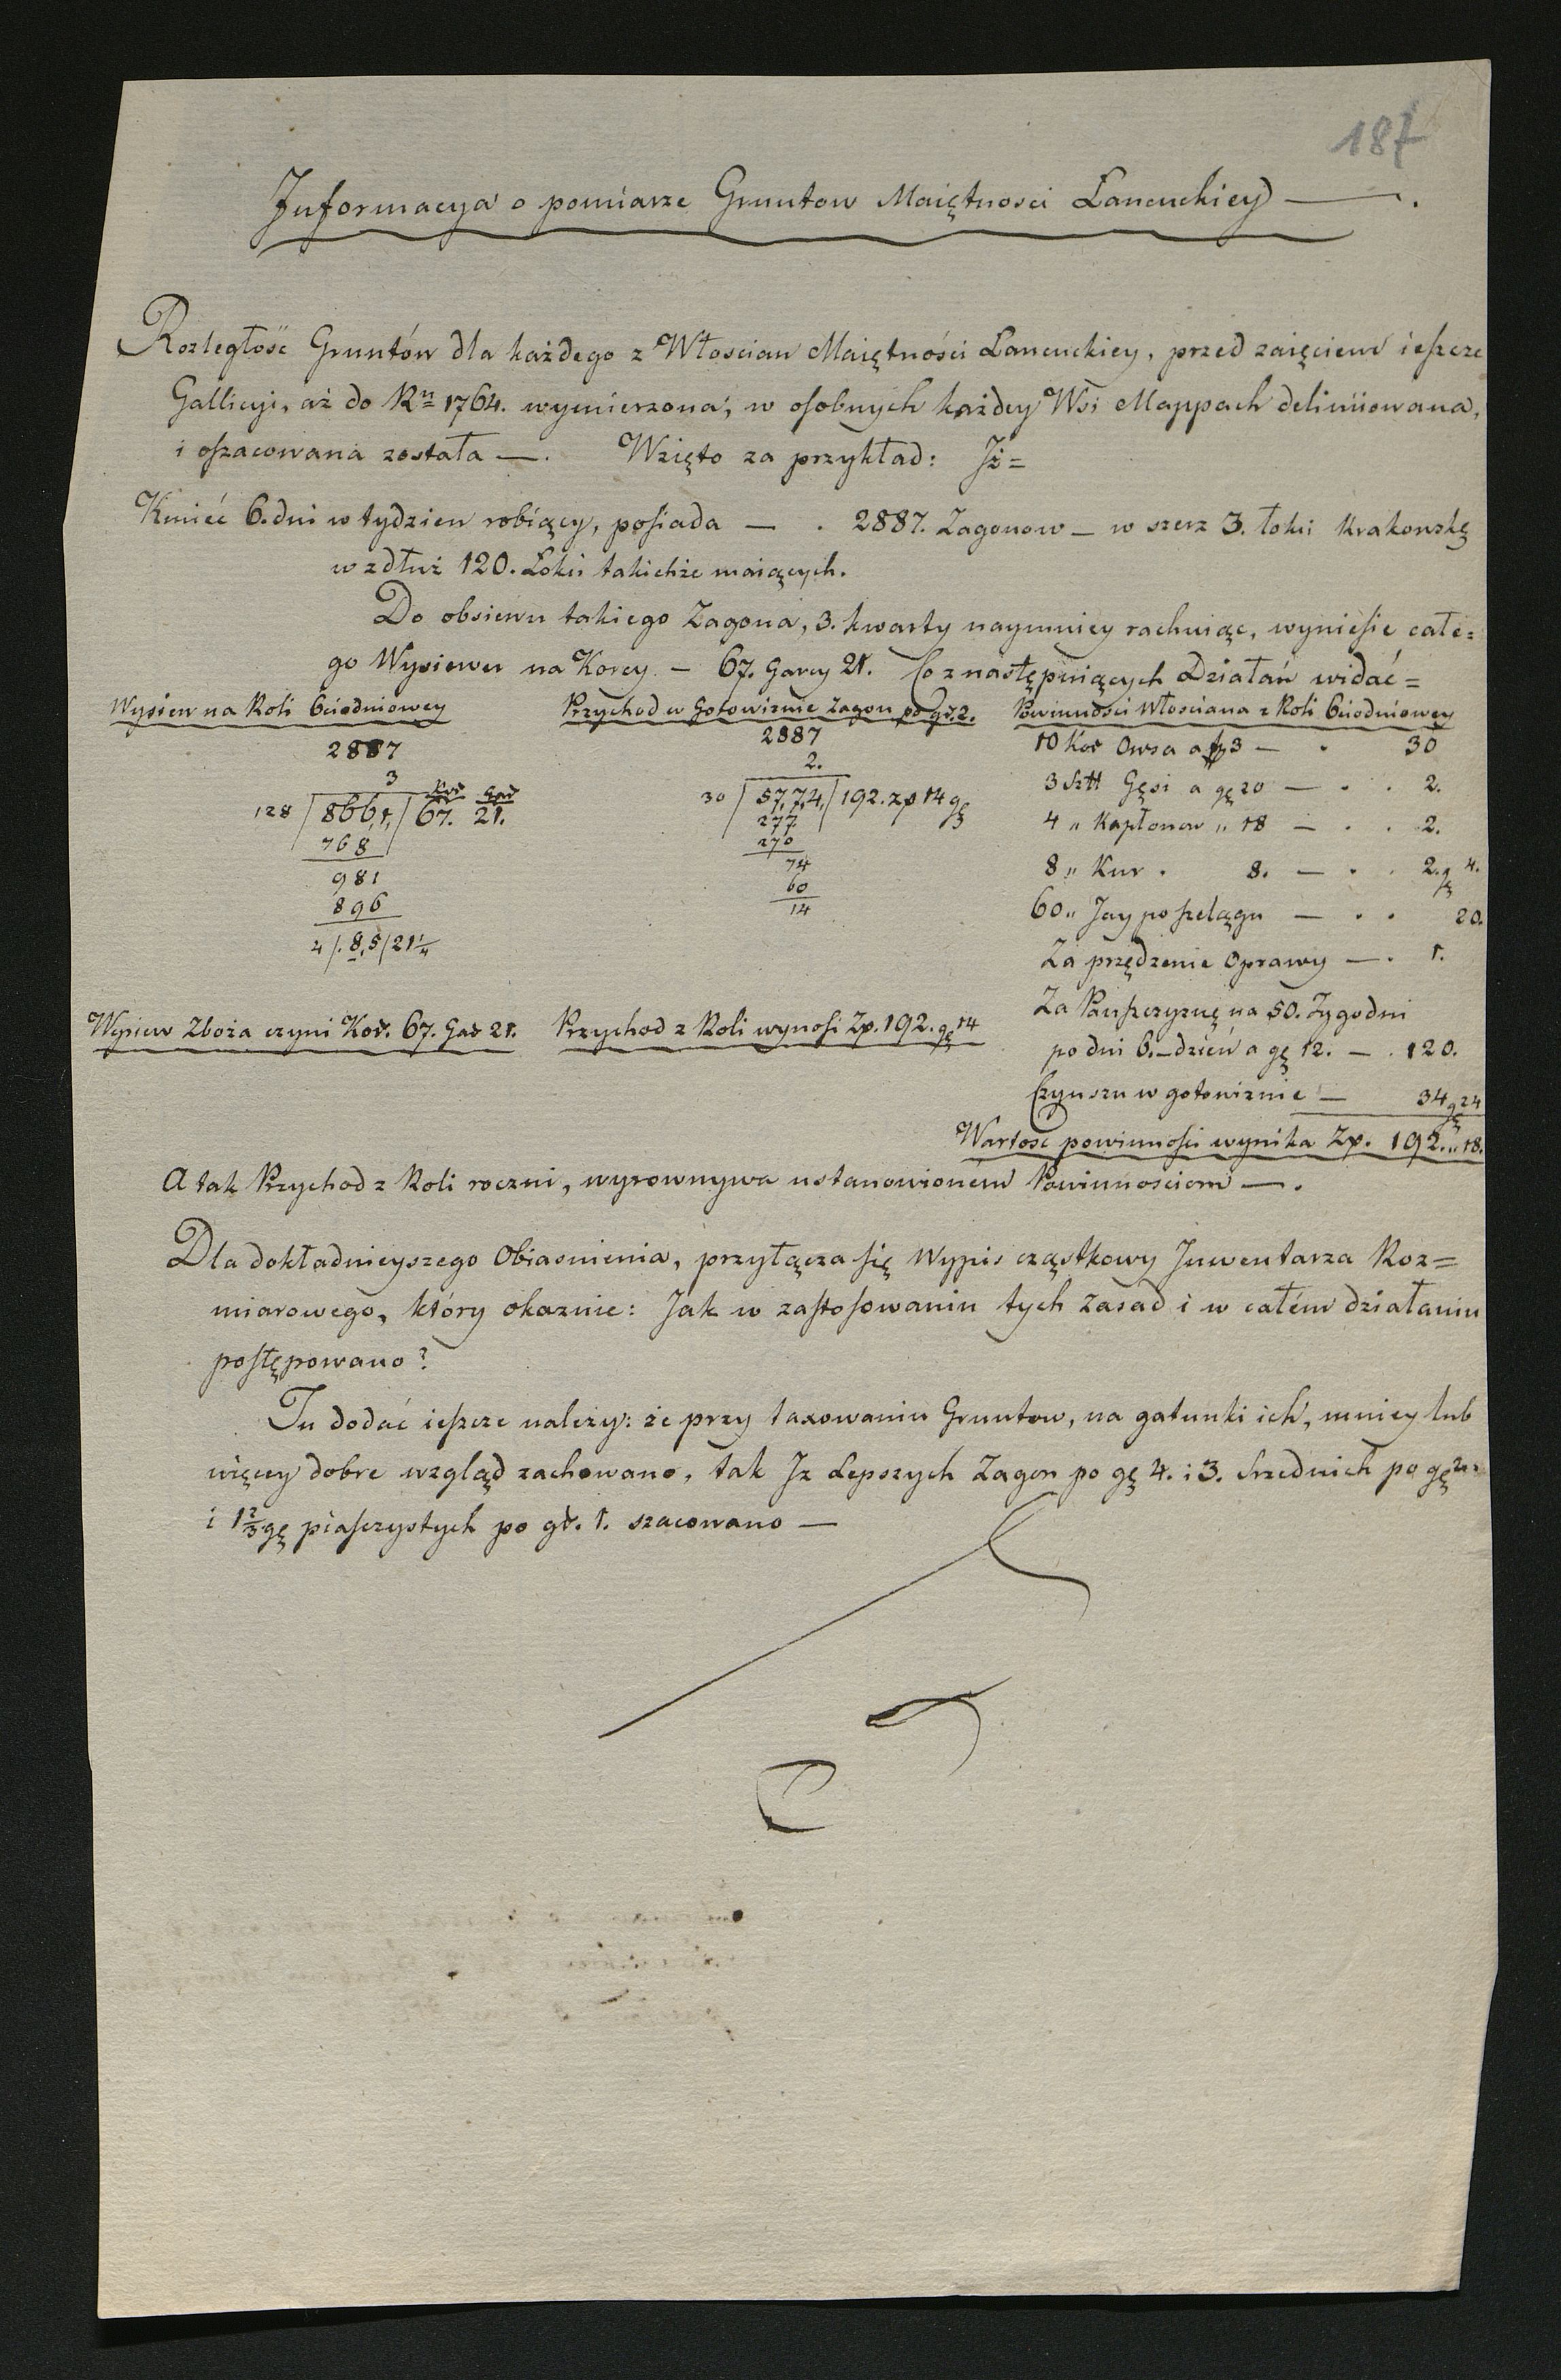 187
Informacya o pomiarze Gruntow Maiętnosci Łancuckiey —.
Rozległość Gruntów dla każdego z Włoscian Maiętności Łancuckiey, przed zaięciem ieszcze
Gallicyi, aż do Ru 1764. wymierzona, w osobnych każdey Wsi Mappach deliniowana,
i oszacowana została —. Wzięto za przykład: Iż=
Kmieć 6. dni w tydzien robiący, posiada — . 2887. Zagonow — w szerz 3. łokci Krakowskę
wzdłuż 120. Łokci takichże maiących.
Do obsiewu takiego Zagona, 3. kwarty naymniey rachuiąc, wyniesie całe=
go Wysiewu na Korcy — 67. Garcy 21. Co z następuiących Działań widać=
Wysiew na Roli 6ciodniowey
2887
3
Kor Gar
128 / 8661, / 67. 21.
768
981
896
4 /. 8,5 / 21 1/4
Wysiew Zboża czyni Kor. 67. Gar 21.
Przychod w Gotowiznie Zagon po gr. 2.
2887
2.
30 / 57,7,4, / 192. zp 14 gę
277
270
74
60
14
Przychod z Roli wynosi Zp. 192. gę 14
Powinności Włosciana z Roli 6ciodniowey
10 Kor Owsa a 3 — . 30
3 Szt Gęsi a gę 20 — . . 2.
4 „ Kapłonow „ 18 — . . 2.
8 „ Kur . 8. — . . 2. gę 4.
60 „ Jay po szelągu — . . 20.
Za przędzenie Oprawy — . 1.
Za Panszczyznę na 50. Tygodni
po dni 6. — dzień a gę 12. — . 120.
Czynszu w gotowiznie — 34 gę 24
Wartosc powinnosci wynika Zp. 192. „ 18.
A tak Przychod z Roli roczni, wyrownywa ustanowionem Powinnosciom —.
Dla dokładnieyszego Obiasnienia, przyłącza się Wypis cząstkowy Inwentarza Roz=
miarowego, który okaznie: Jak w zastosowaniu tych Zasad i w całém działaniu
postępowano?
Tu dodać ieszcze należy: że przy taxowaniu Gruntow, na gatunki ich, mniey lub
więcey dobre wzgląd zachowano, tak Iz Lepszych Zagon po gę 4. i 3. Srzednich po gę 2.
i 1 2/3 gę piaszczystych po gr. 1. szacowano —